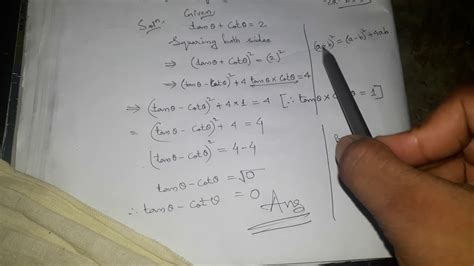 Given
Solⁿ. tanθ + Cotθ = 2
Squaring both sides
⇒ (tanθ + Cotθ)² = (2)²
⇒ (tanθ - Cotθ)² + 4 tanθ × Cotθ = 4
⇒ (tanθ - Cotθ)² + 4 × 1 = 4 [∴ tanθ × Cotθ = 1]
= (tanθ - Cotθ)² + 4 = 4
(tanθ - Cotθ)² = 4 - 4
tanθ - Cotθ = √0
∴ tanθ - Cotθ = 0 Ans
(a+b)² = (a-b)² + 4ab.